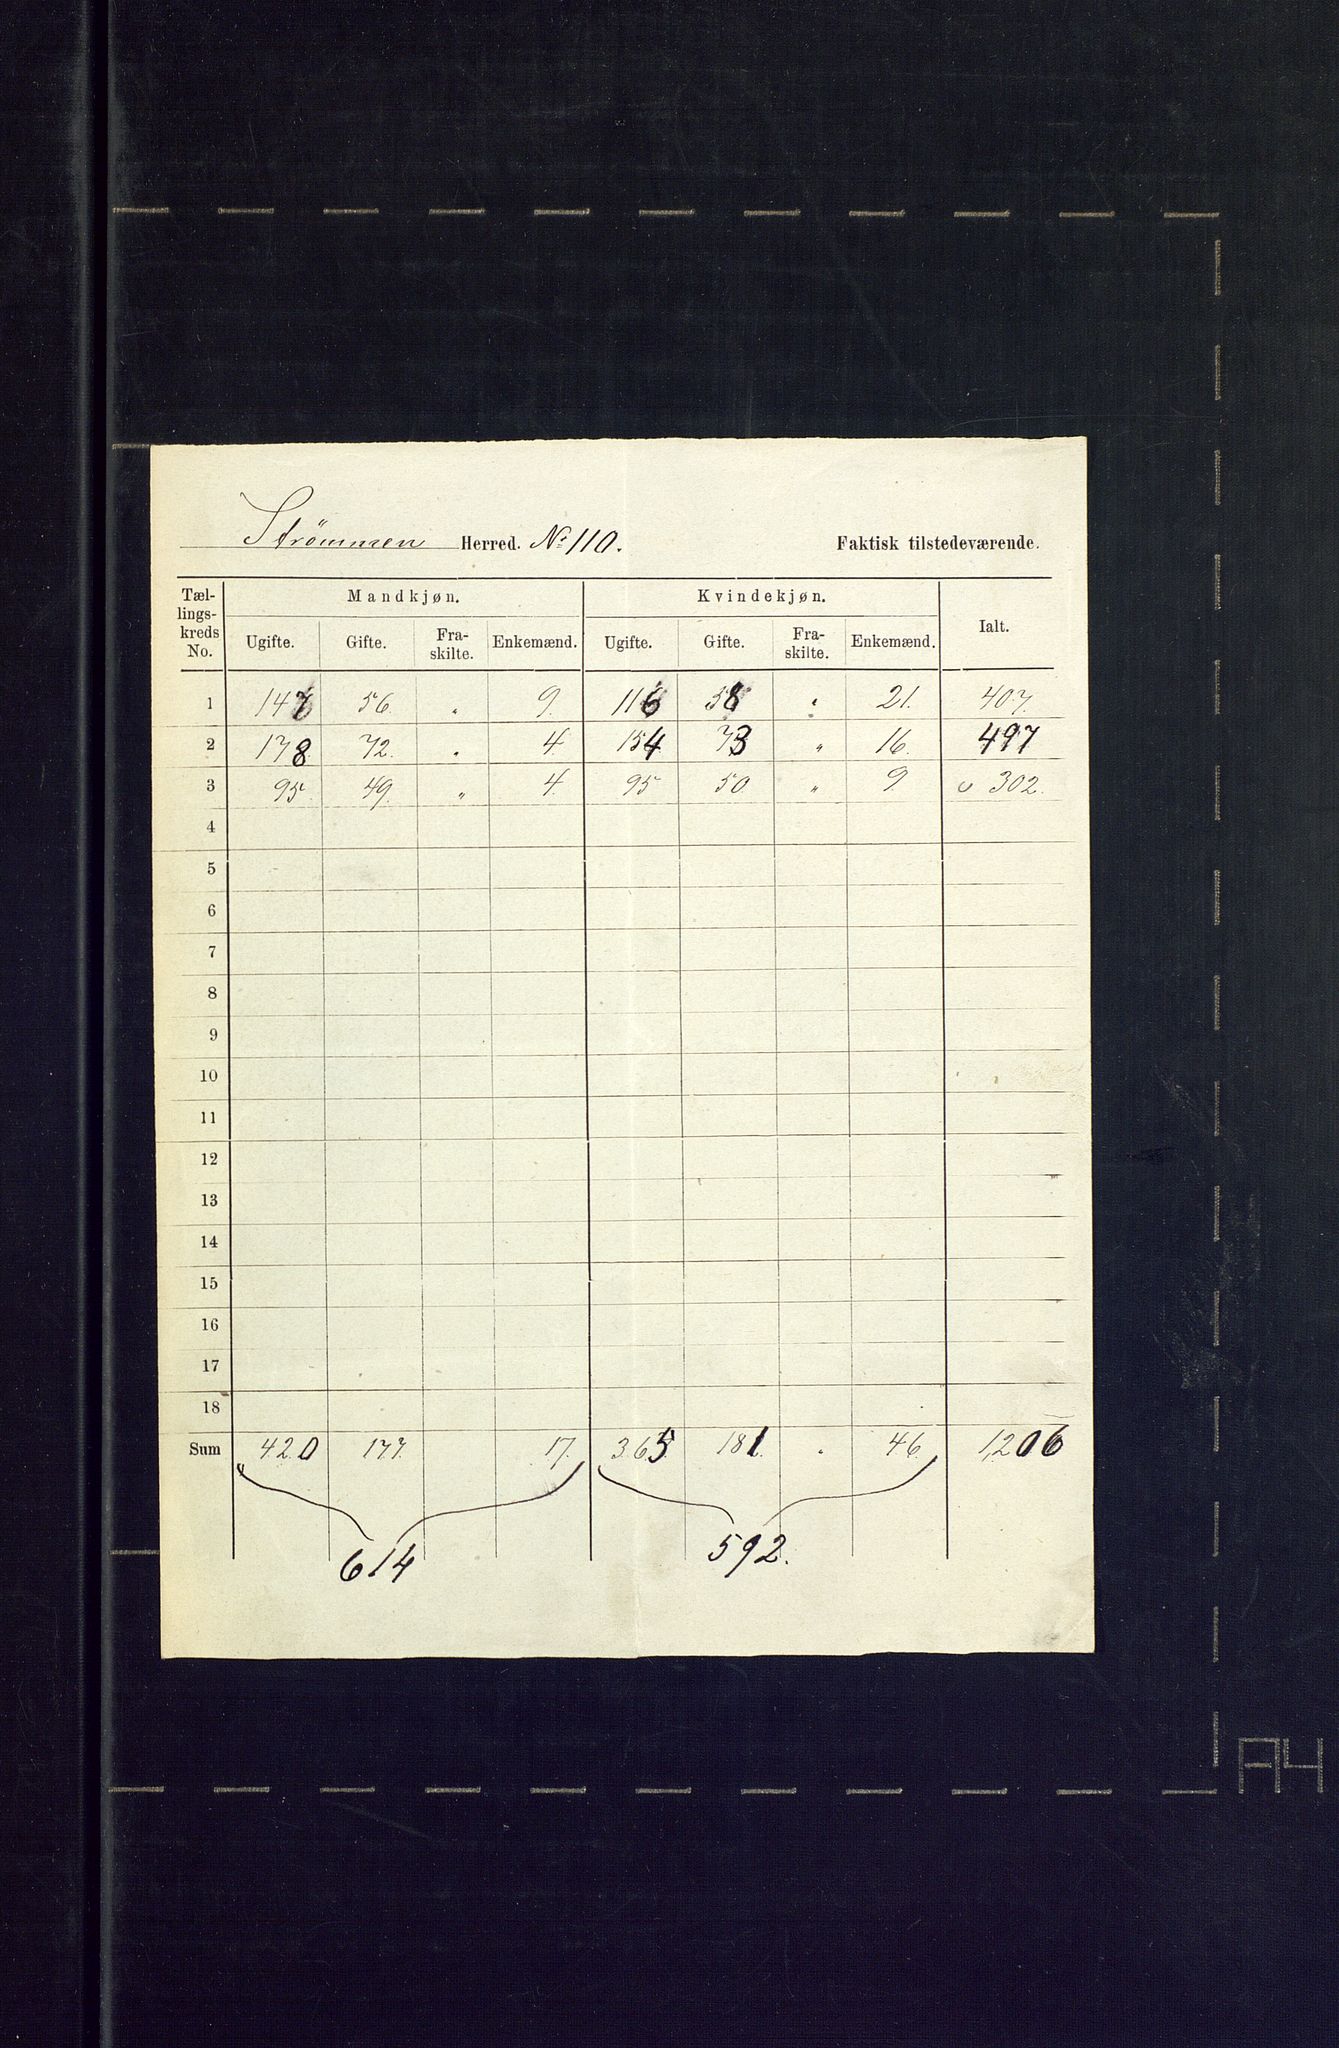 Strömmen Herred. No 110. Faktisk tilstedeværende.
Tæl-
lings-
kreds
No. Mandkjøn. Kvindekjøn. Ialt.
Ugifte. Gifte. Fra-
skilte. Enkemænd. Ugifte. Gifte. Fra-
skilte. Enkemænd.
1 147 56 " 9. 116 58 " 21. 407.
2 178 72. " 4 154 73 " 16. 497
3 95 49. " 4. 95 50 " 9 302.
4
5
6
7
8
9
10
11
12
13
14
15
16
17
18
Sum 420 177. 17. 365 181. " 46. 1206
614 592.
A4